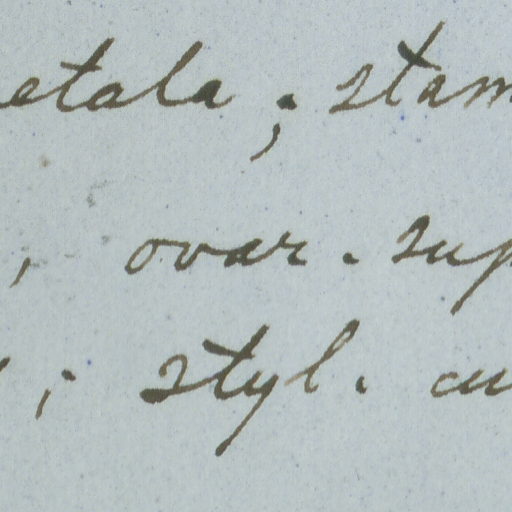 etala ; stam
, ovar. sup
; styl. cu